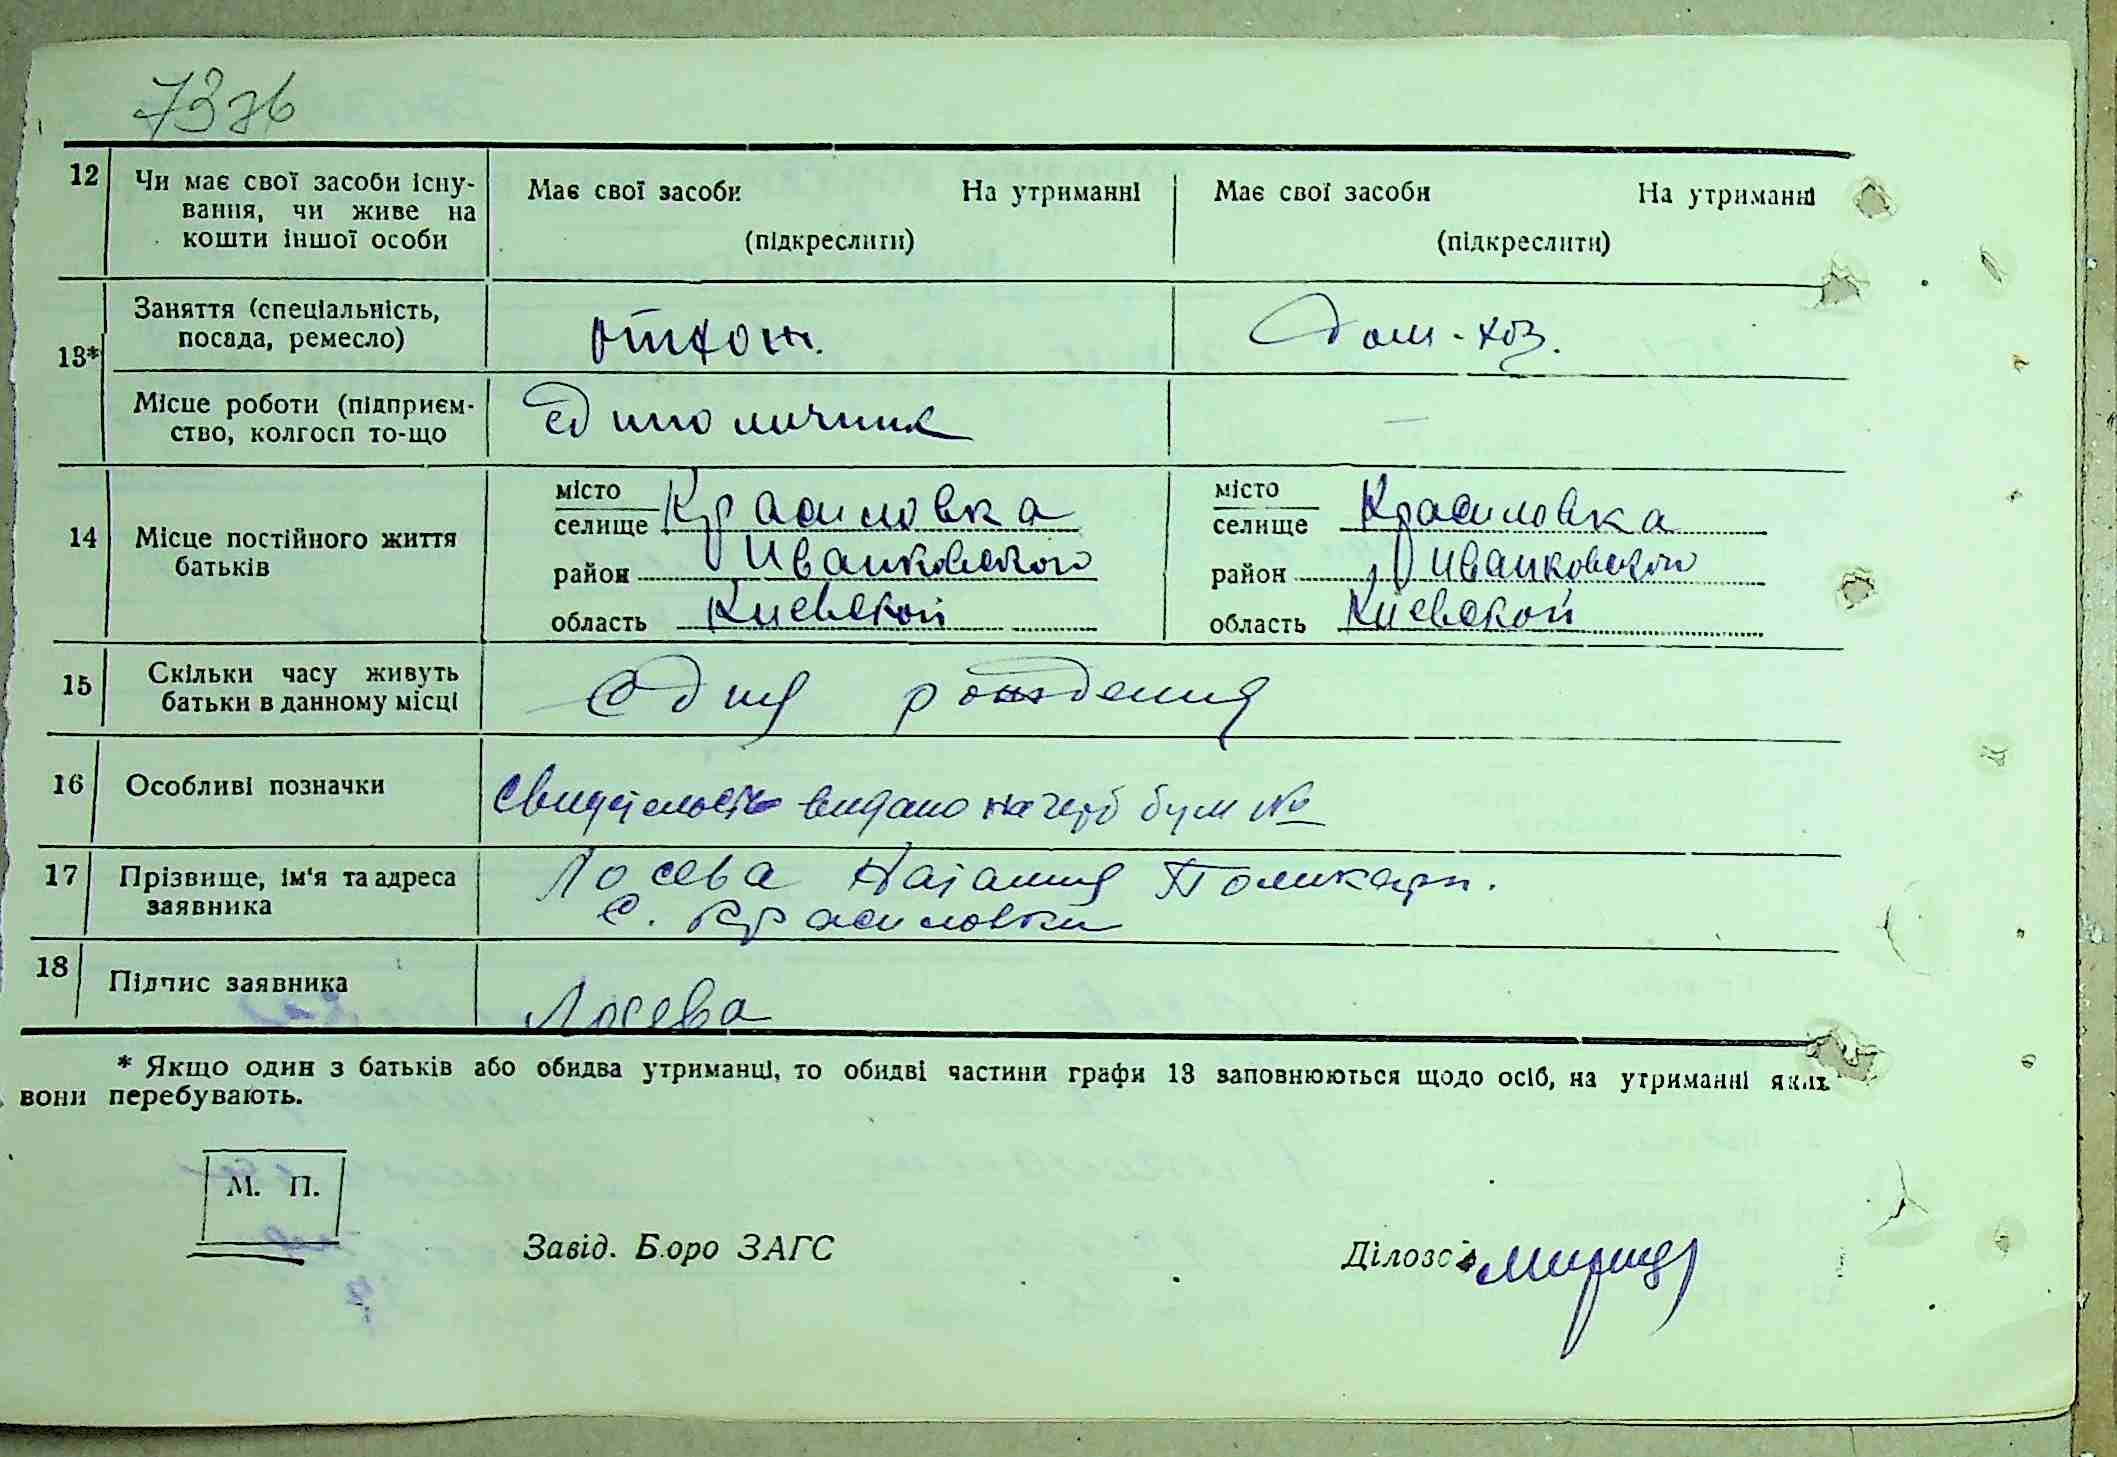 73зв
12 Чи має свої засоби існу-
вання, чи живе на
кошти іншої особи
Має свої засоби На утриманні
(підкреслити)
Має свої засоби На утриманні
(підкреслити)
13* Заняття (спеціальність,
посада, ремесло)
отхож.
Дом-хоз.
Місце роботи (підприєм-
ство, колгосп то-що
Единоличник
—
14 Місце постійного життя
батьків
місто
селище Красиловка
район Иванковского
область Киевской
місто
селище Красиловка
район Иванковского
область Киевской
15 Скільки часу живуть
батьки в данному місці
Со дня рождения
16 Особливі позначки
Свидетельство выдано на герб бум №
17 Прізвище, ім'я та адреса
заявника
Лосева Наталия Поликарп.
с. Красиловки
18 Підпис заявника
Лосева
* Якщо один з батьків або обидва утриманці, то обидві частини графи 13 заповнюються щодо осіб, на утриманні яких
вони перебувають.
М. П.
Завід. Бюро ЗАГС
Ділово